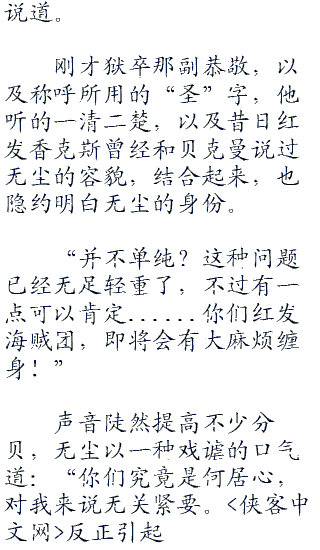 说道。
刚才狱卒那副恭敬，以
及称呼所用的“圣”字，他
听的一清二楚，以及昔日红
发香克斯曾经和贝克曼说过
无尘的容貌，结合起来，也
隐约明白无尘的身份。
“并不单纯？这种问题
已经无足轻重了，不过有一
点可以肯定......你们红发
海贼团，即将会有大麻烦缠
身！”
声音陡然提高不少分
贝，无尘以一种戏谑的口气
道：“你们究竟是何居心，
对我来说无关紧要。<侠客中
文网>反正引起